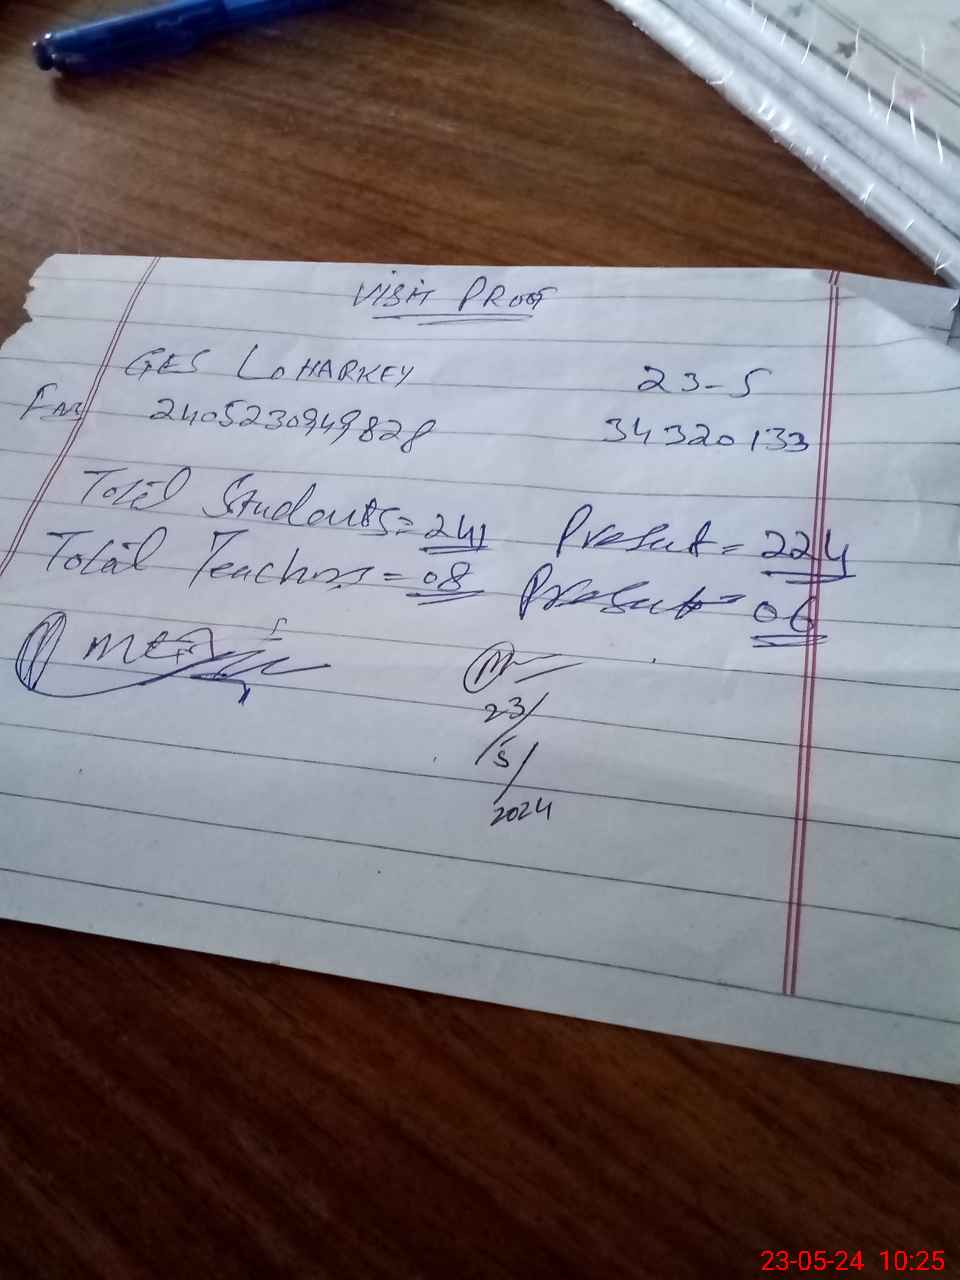 VISIT PROOF
GES LOHARKEY 23-5
2405230949828 34320133
Total Students = 241 Present = 224
Total Teachers = 08 Present = 06
23/
5/
2024
23-05-24 10:25